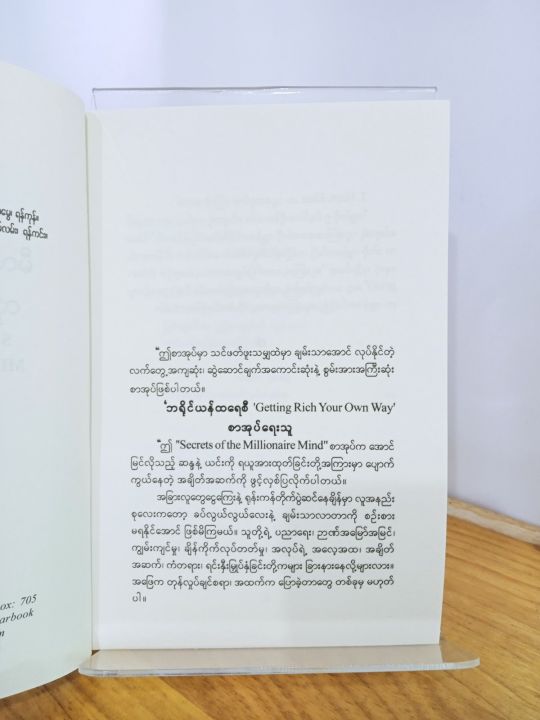 ရန်ကုန်။
လမ်း၊ ရန်ကင်း၊
ox: 705
arbook
m
“ဤစာအုပ်မှာ သင်ဖတ်ဖူးသမျှထဲမှာ ချမ်းသာအောင် လုပ်နိုင်တဲ့
လက်တွေ့အကျဆုံး၊ ဆွဲဆောင်ချက်အကောင်းဆုံးနဲ့ စွမ်းအားအကြီးဆုံး
စာအုပ်ဖြစ်ပါတယ်။
‘ဘရိုင်ယန်ထရေစီ 'Getting Rich Your Own Way'
စာအုပ်ရေးသူ
“ဤ "Secrets of the Millionaire Mind" စာအုပ်က အောင်
မြင်လိုသည့် ဆန္ဒနဲ့ ယင်းကို ရယူအားထုတ်ခြင်းတို့အကြားမှာ ပျောက်
ကွယ်နေတဲ့ အချိတ်အဆက်ကို ဖွင့်လှစ်ပြလိုက်ပါတယ်။
အခြားလူတွေငွေကြေးနဲ့ ရုန်းကန်တိုက်ပွဲဆင်နေချိန်မှာ လူအနည်း
စုလေးကတော့ ခပ်လွယ်လွယ်လေးနဲ့ ချမ်းသာလာတာကို စဉ်းစား
မရနိုင်အောင် ဖြစ်မိကြမယ်။ သူတို့ရဲ့ ပညာရေး၊ ဉာဏ်အမြော်အမြင်၊
ကျွမ်းကျင်မှု၊ ချိန်ကိုက်လုပ်တတ်မှု၊ အလုပ်ရဲ့ အလေ့အထ၊ အချိတ်
အဆက်၊ ကံတရား၊ ရင်းနှီးမြှုပ်နှံခြင်းတို့ကများ ခြားနားနေလို့များလား။
အဖြေက တုန်လှုပ်ချင်စရာ၊ အထက်က ပြောခဲ့တာတွေ တစ်ခုမှ မဟုတ်
ပါ။